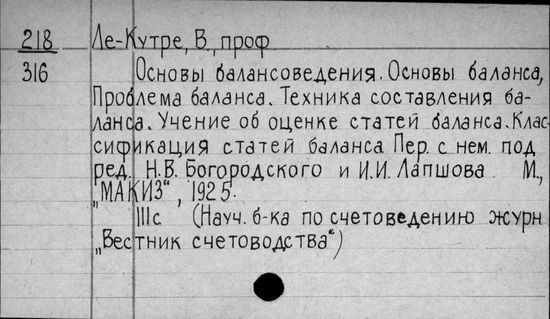 218 Ле-Кутре, В., проф
316 Основы балансоведения. Основы баланса,
Проблема баланса. Техника составления ба-
ланса. Учение об оценке статей баланса. Клас-
сификация статей баланса Пер. с нем. под
ред. Н.В. Богородского и И.И. Лапшова М.,
„МАКИЗ“, 1925.
IIIс (Науч. б-ка по счетоведению журн
„Вестник счетоводства“)